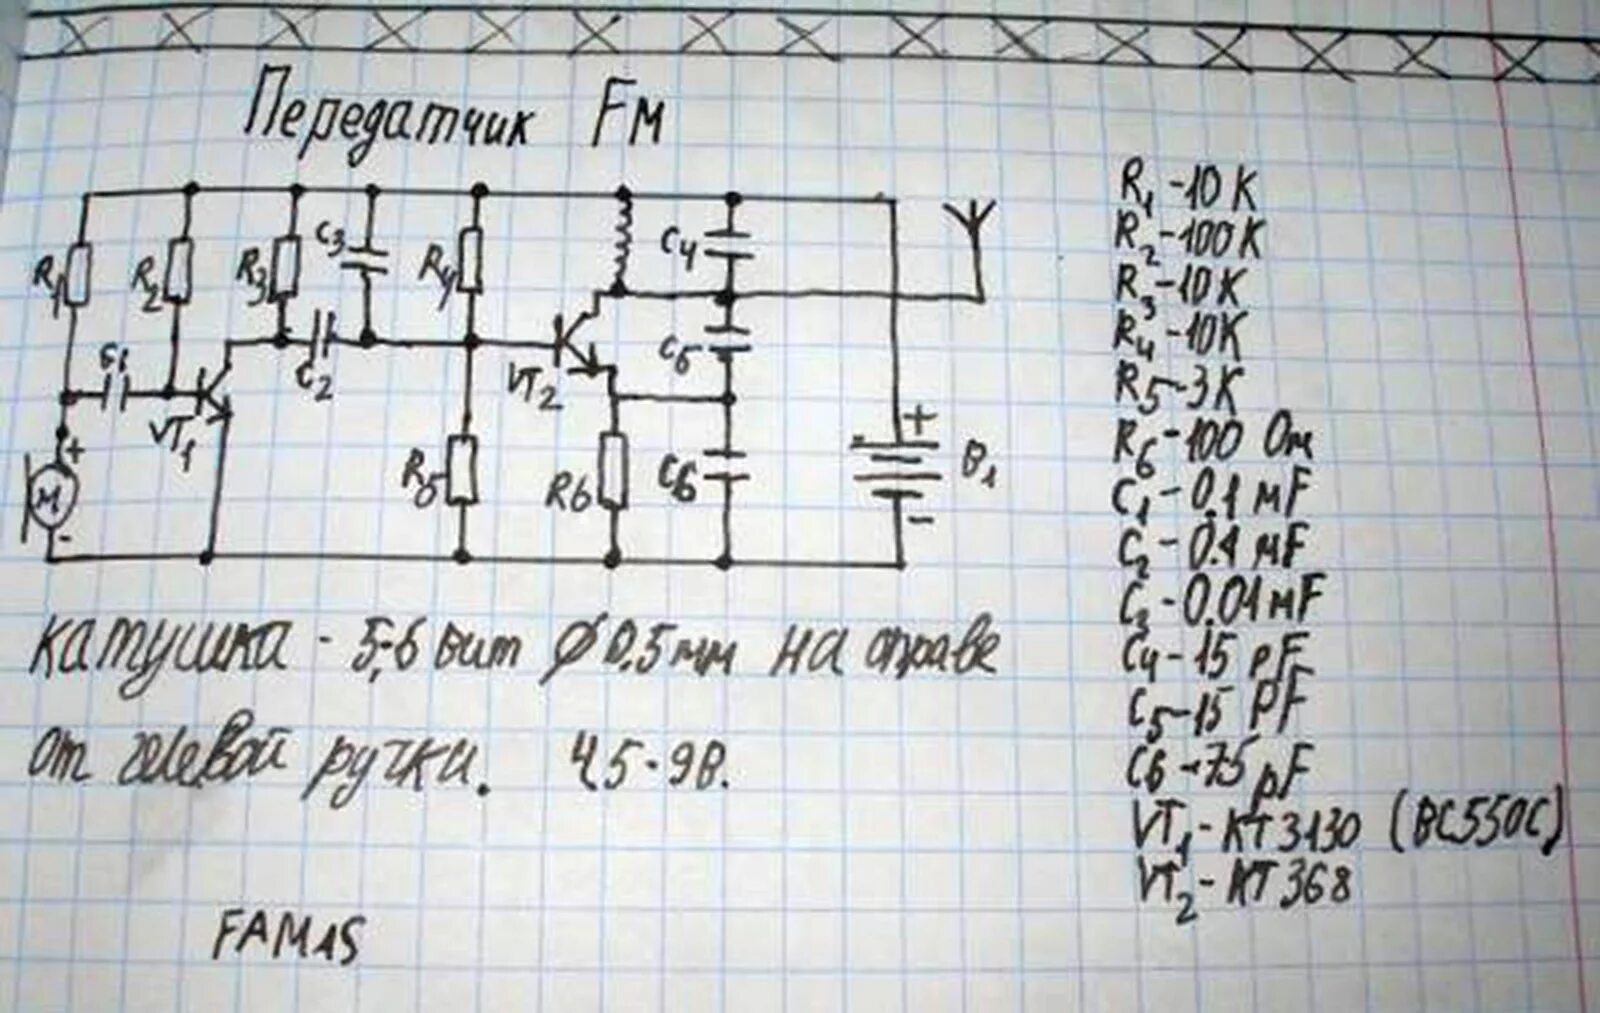 Передатчик FM
R1 R2 R3 C3 R4 C4
C1 VT1 C2 VT2 C5
M + - R5 R6 C6 + B1 -
R1 - 10 К
R2 - 100 К
R3 - 10 К
R4 - 10К
R5 - 3 К
R6 - 100 Ом
C1 - 0.1 мF
C2 - 0.1 мF
C3 - 0.01 мF
C4 - 15 pF
C5 - 15 PF
C6 - 75 pF
VT1 - КТ3130 (BC550C)
VT2 - КТ368
катушка - 5,-6 вит Ø 0.5 мм на оправе
от гелевой ручки. 4,5 - 9 В.
FAMAS